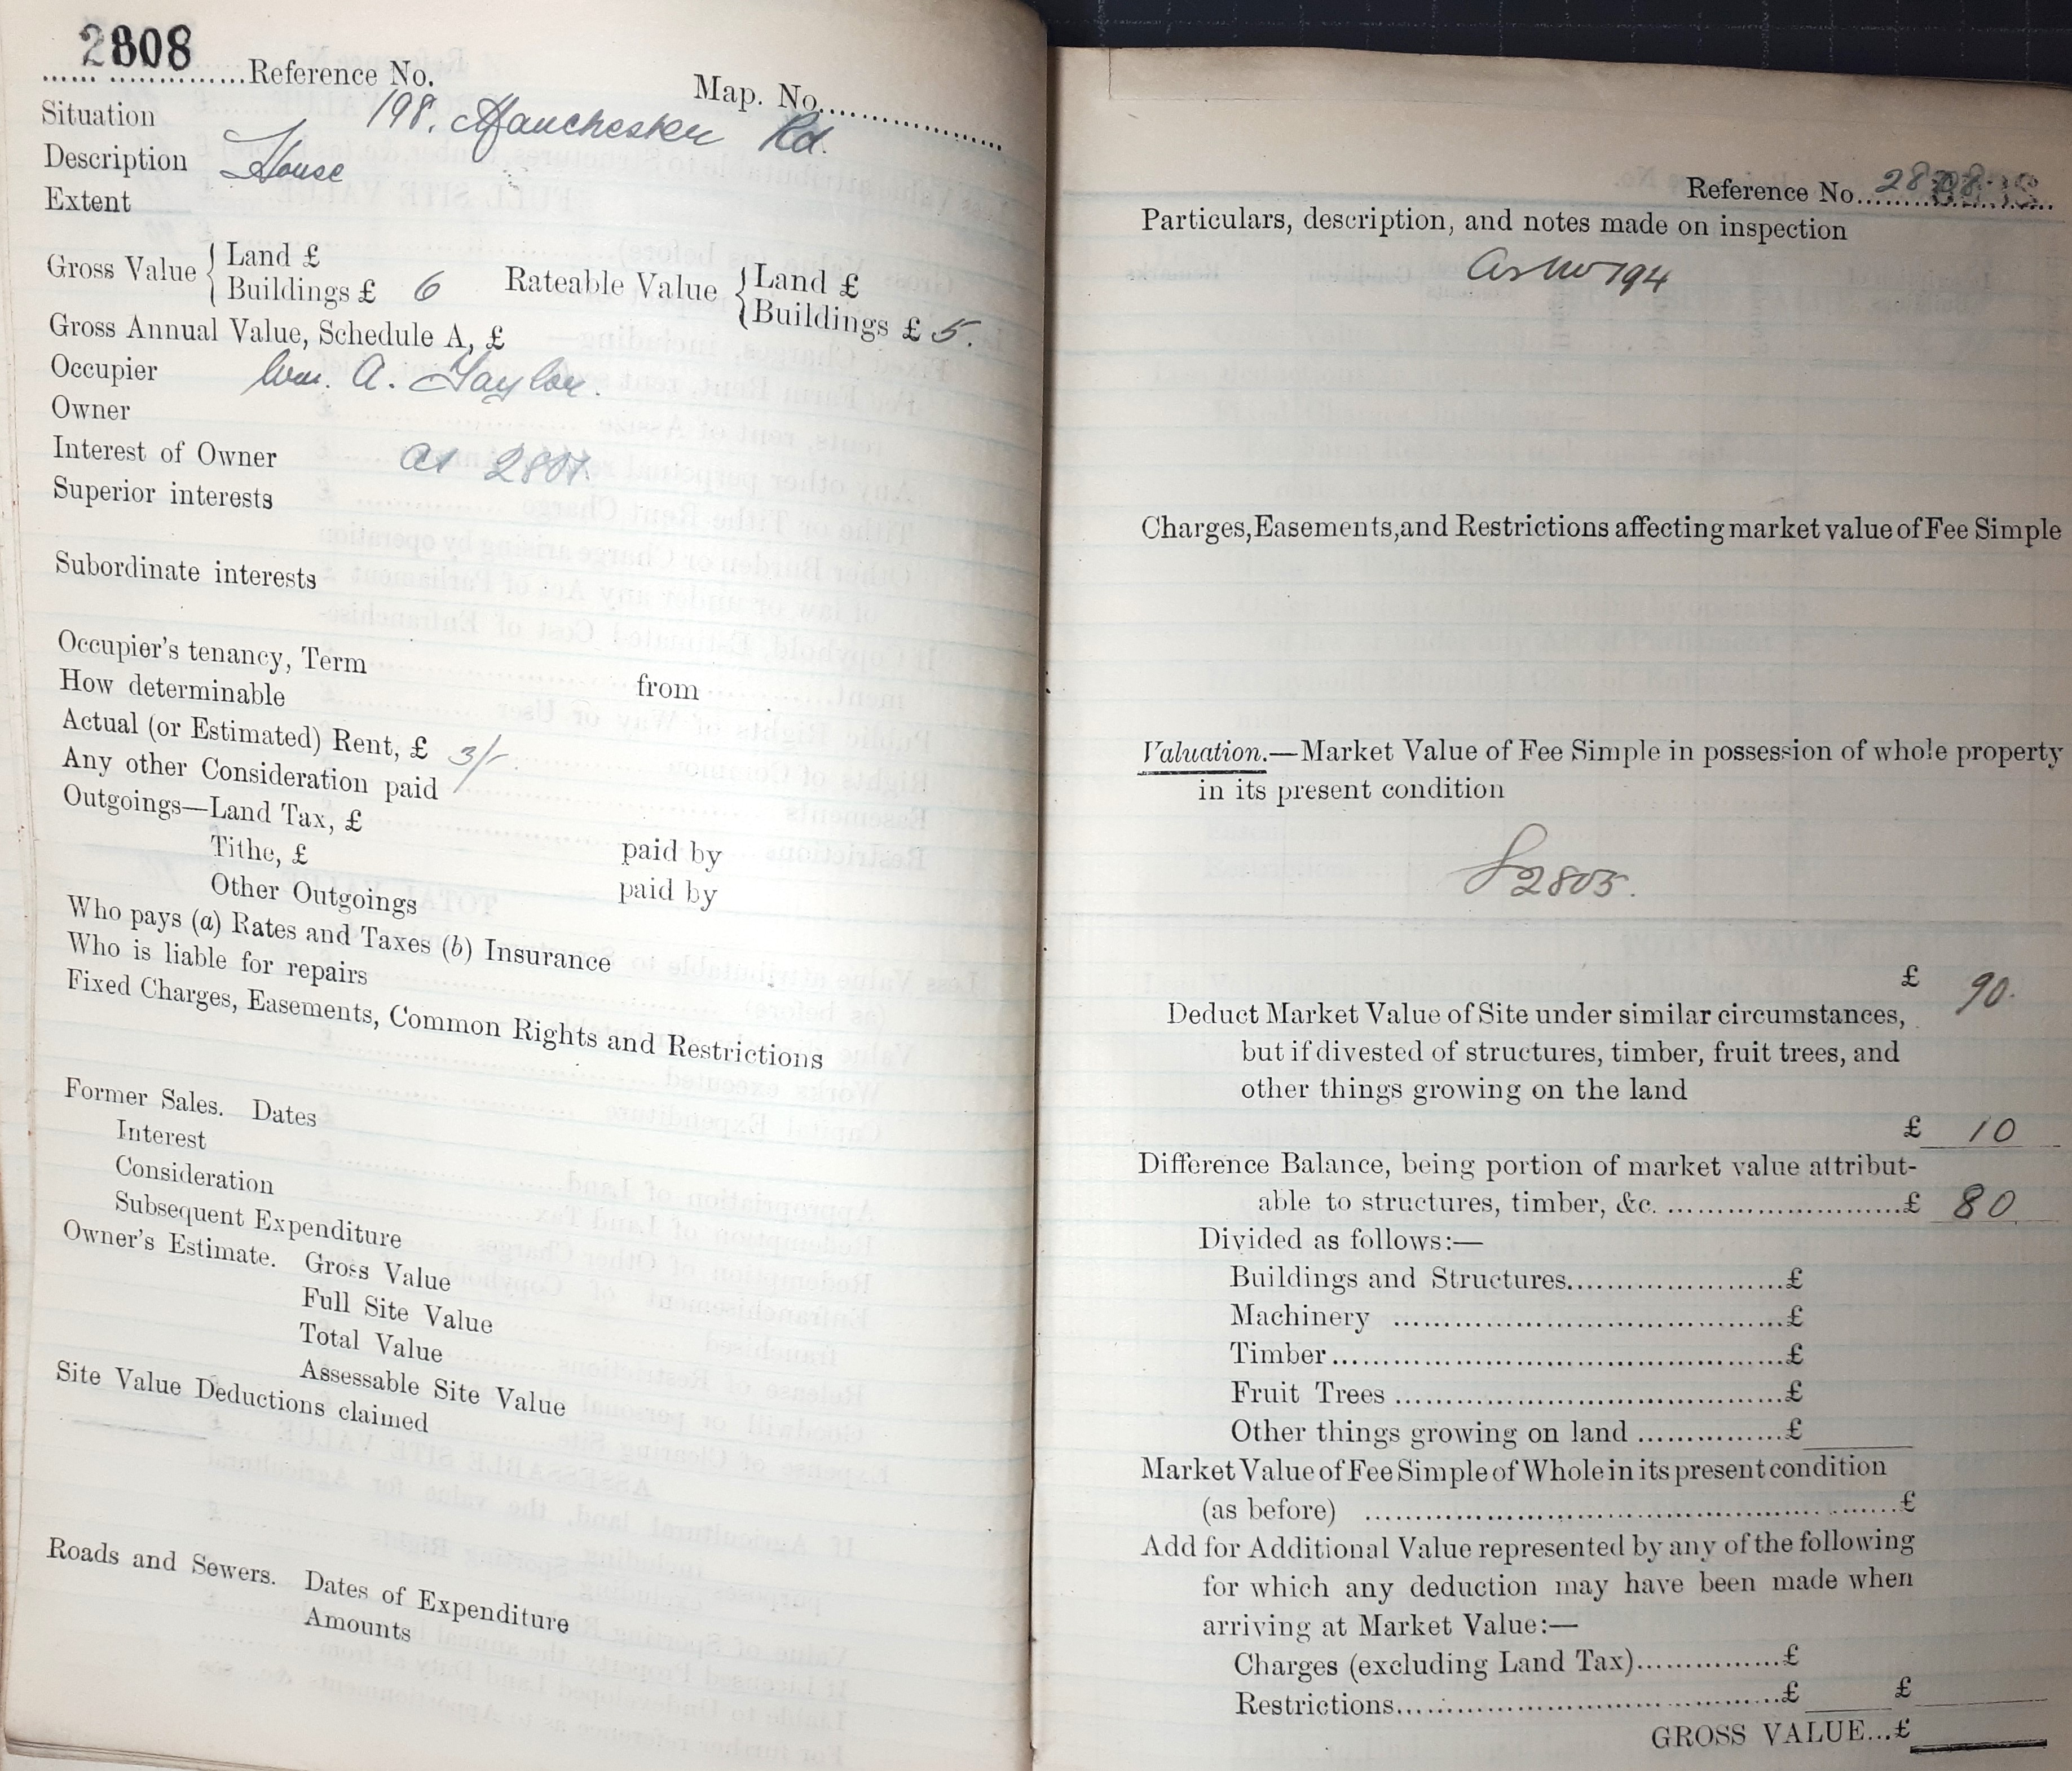 2808 Reference No. Map. No.
Situation 198. Manchester Rd.
Description House
Extent
Gross Value { Land £
Buildings £ 6 Rateable Value { Land £
Buildings £ 5.
Gross Annual Value, Schedule A, £
Occupier Wm. A. Taylor.
Owner
Interest of Owner as 2807.
Superior interests
Subordinate interests
Occupier's tenancy, Term from
How determinable
Actual (or Estimated) Rent, £ 3/-.
Any other Consideration paid
Outgoings—Land Tax, £ paid by
Tithe, £ paid by
Other Outgoings
Who pays (a) Rates and Taxes (b) Insurance
Who is liable for repairs
Fixed Charges, Easements, Common Rights and Restrictions
Former Sales. Dates
Interest
Consideration
Subsequent Expenditure
Owner's Estimate. Gross Value
Full Site Value
Total Value
Assessable Site Value
Site Value Deductions claimed
Roads and Sewers. Dates of Expenditure
Amounts
Reference No. 2808
Particulars, description, and notes made on inspection
as No 194
Charges, Easements, and Restrictions affecting market value of Fee Simple
Valuation.—Market Value of Fee Simple in possession of whole property
in its present condition
2805.
£ 90.
Deduct Market Value of Site under similar circumstances,
but if divested of structures, timber, fruit trees, and
other things growing on the land
£ 10
Difference Balance, being portion of market value attribut-
able to structures, timber, &c. £ 80
Divided as follows:—
Buildings and Structures £
Machinery £
Timber £
Fruit Trees £
Other things growing on land £
Market Value of Fee Simple of Whole in its present condition
(as before) £
Add for Additional Value represented by any of the following
for which any deduction may have been made when
arriving at Market Value:—
Charges (excluding Land Tax) £
Restrictions £ £
GROSS VALUE...£